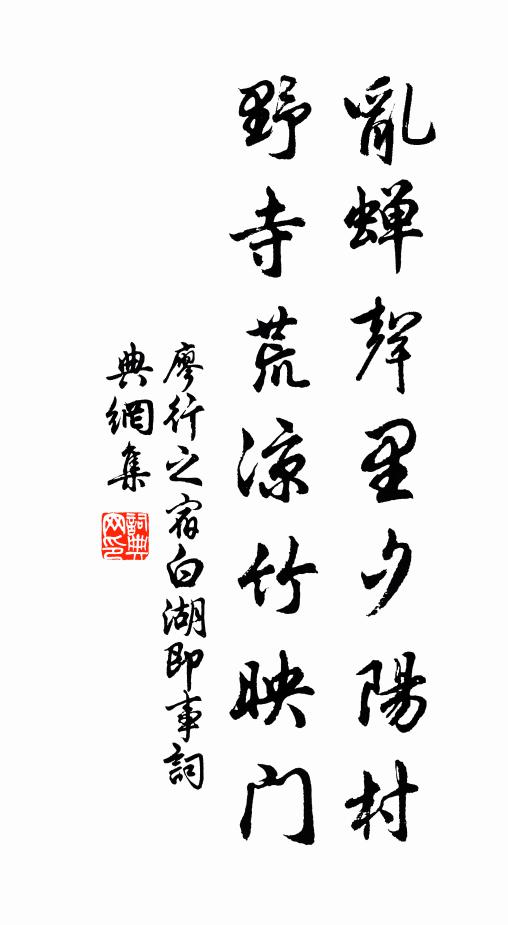 亂蟬聲里夕陽村
野寺荒涼竹映門
廖行之宿白湖即事詞
典網集
詞典
网印